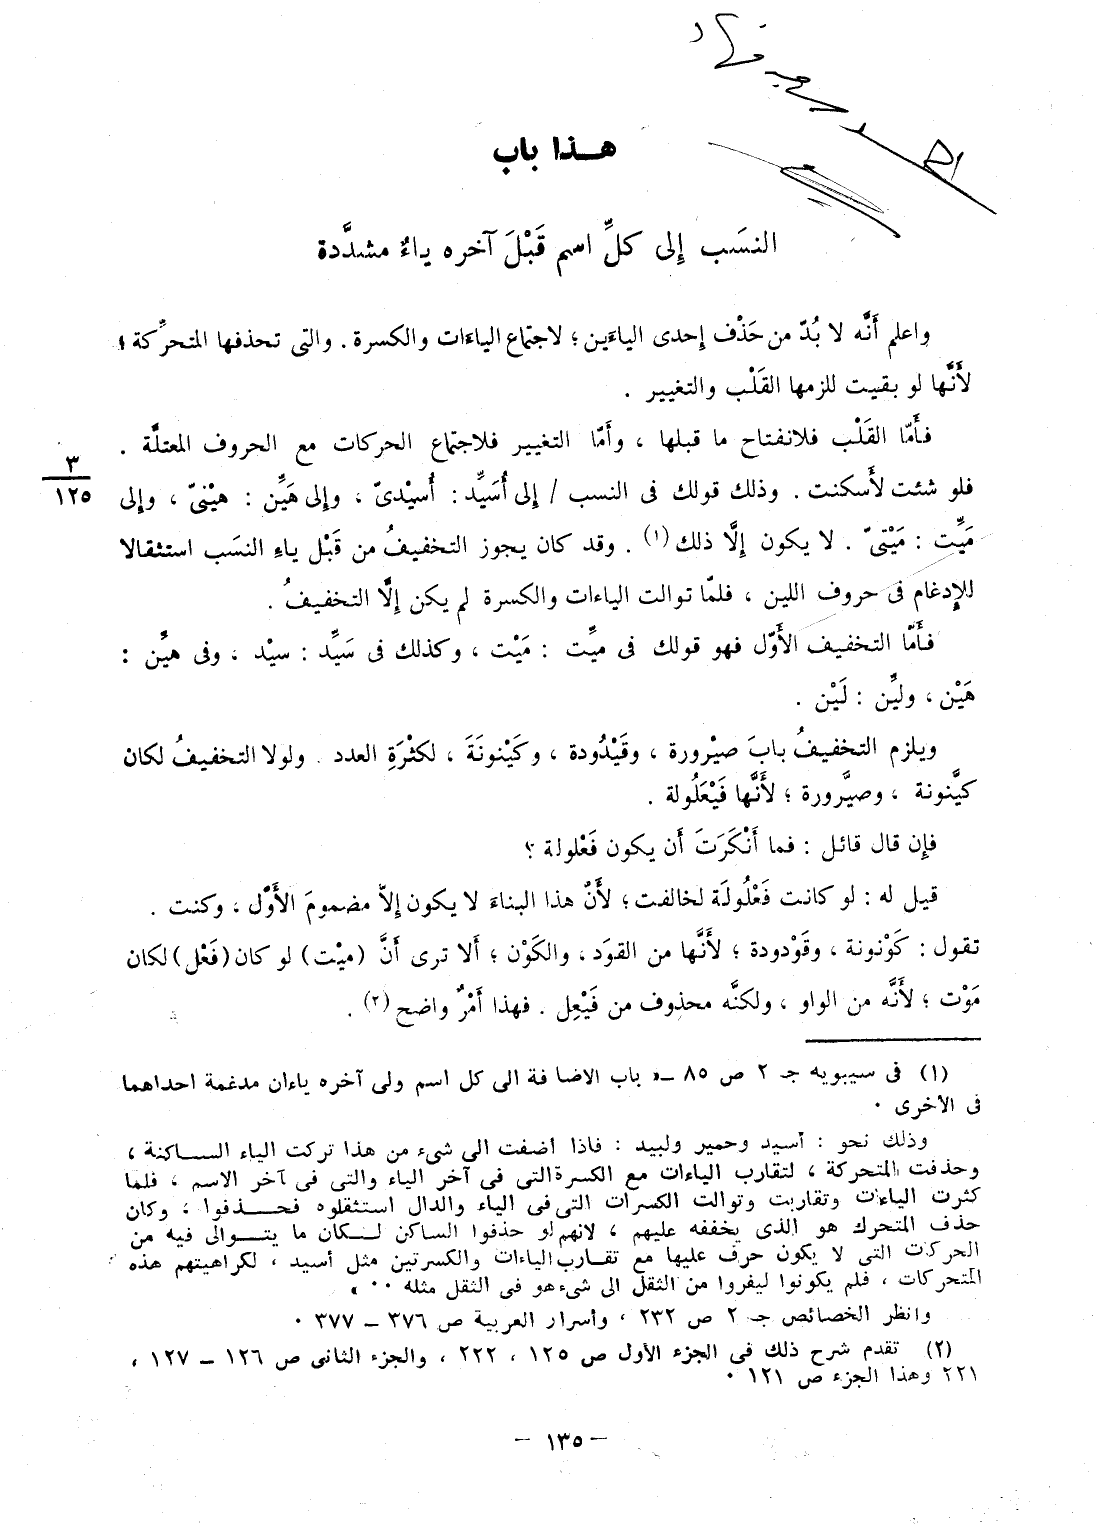 هـــذا باب
النسَب إلى كلِّ اسم قَبْلَ آخره ياءٌ مشدَّدة
واعلم أَنَّه لا بُدّ من حَذْف إحدى الياءَين ؛ لاجتماع الياءَات والكسرة . والتى تحذفها المتحرِّكة ؛
لأَنَّها لو بقيت للزمها القَلْب والتغيير .
فأَمّا القَلْب فلانفتاح ما قبلها ، وأَمّا التغيير فلاجتماع الحركات مع الحروف المعتلَّة .
٣
١٢٥
فلو شئت لأَسكنت . وذلك قولك فى النسب / إلى أُسَيِّد : أُسيْدىّ ، وإلى هَيِّن : هيْنىّ ، وإلى
مَيِّت : مَيْتىّ . لا يكون إلَّا ذلك (١) . وقد كان يجوز التخفيفُ من قَبْل ياءِ النسَب استثقالا
للإِدغام فى حروف اللين ، فلمّا توالت الياءات والكسرة لم يكن إلَّا التخفيفُ .
فأَمّا التخفيف الأَوّل فهو قولك فى ميِّت : مَيْت ، وكذلك فى سَيِّد : سيْد ، وفى هيِّن :
هَيْن ، وليِّن : لَيْن .
ويلزم التخفيفُ بابَ صيْرورة ، وقَيْدُودة ، وكَيْنونَةَ ، لكثْرَةِ العدد . ولولا التخفيفُ لكان
كيَّنونة ، وصيَّرورة ؛ لأَنَّها فَيْعَلُولة .
فإن قال قائل : فما أَنْكَرَتَ أن يكون فَعْلولة ؟
قيل له : لو كانت فَعْلُولَة لخالفت ؛ لأَنَّ هذا البناءَ لا يكون إلاّ مضمومَ الأَوَّل ، وكنت .
تقول : كَوْنونة ، وقَوْدودة ؛ لأَنَّها من القوَد ، والكَوْن ؛ أَلا ترى أَنَّ (ميْت) لو كان (فَعْل) لكان
مَوْت ؛ لأَنَّه من الواو ، ولكنَّه محذوف من فَيْعِل . فهذا أَمْرٌ واضح (٢) .
(١) فى سيبويه جـ ٢ ص ٨٥ ــ « باب الاضافة الى كل اسم ولى آخره ياءان مدغمة احداهما
فى الأخرى ٠
وذلك نحو : أسيد وحمير ولبيد : فاذا اضفت الى شىء من هذا تركت الياء الســاكنة ،
وحذفت المتحركة ، لتقارب الياءات مع الكسرة التى فى آخر الياء والتى فى آخر الاسم ، فلما
كثرت الياءات وتقاربت وتوالت الكسرات التى فى الياء والدال استثقلوه فحــذفوا ، وكان
حذف المتحرك هو الذى يخففه عليهم ، لانهم لو حذفوا الساكن لــكان ما يتــوالى فيه من
الحركات التى لا يكون حرف عليها مع تقــارب الياءات والكسرتين مثل أسيد ، لكراهيتهم هذه
المتحركات ، فلم يكونوا ليفروا من الثقل الى شىء هو فى الثقل مثله ٠٠ »
وانظر الخصائص جـ ٢ ص ٢٣٢ ، وأسرار العربية ص ٣٧٦ ــ ٣٧٧ ٠
(٢) تقدم شرح ذلك فى الجزء الأول ص ١٢٥ ، ٢٢٢ ، والجزء الثانى ص ١٢٦ ــ ١٢٧ ،
٢٢١ وهذا الجزء ص ١٢١ ٠
– ١٣٥ –